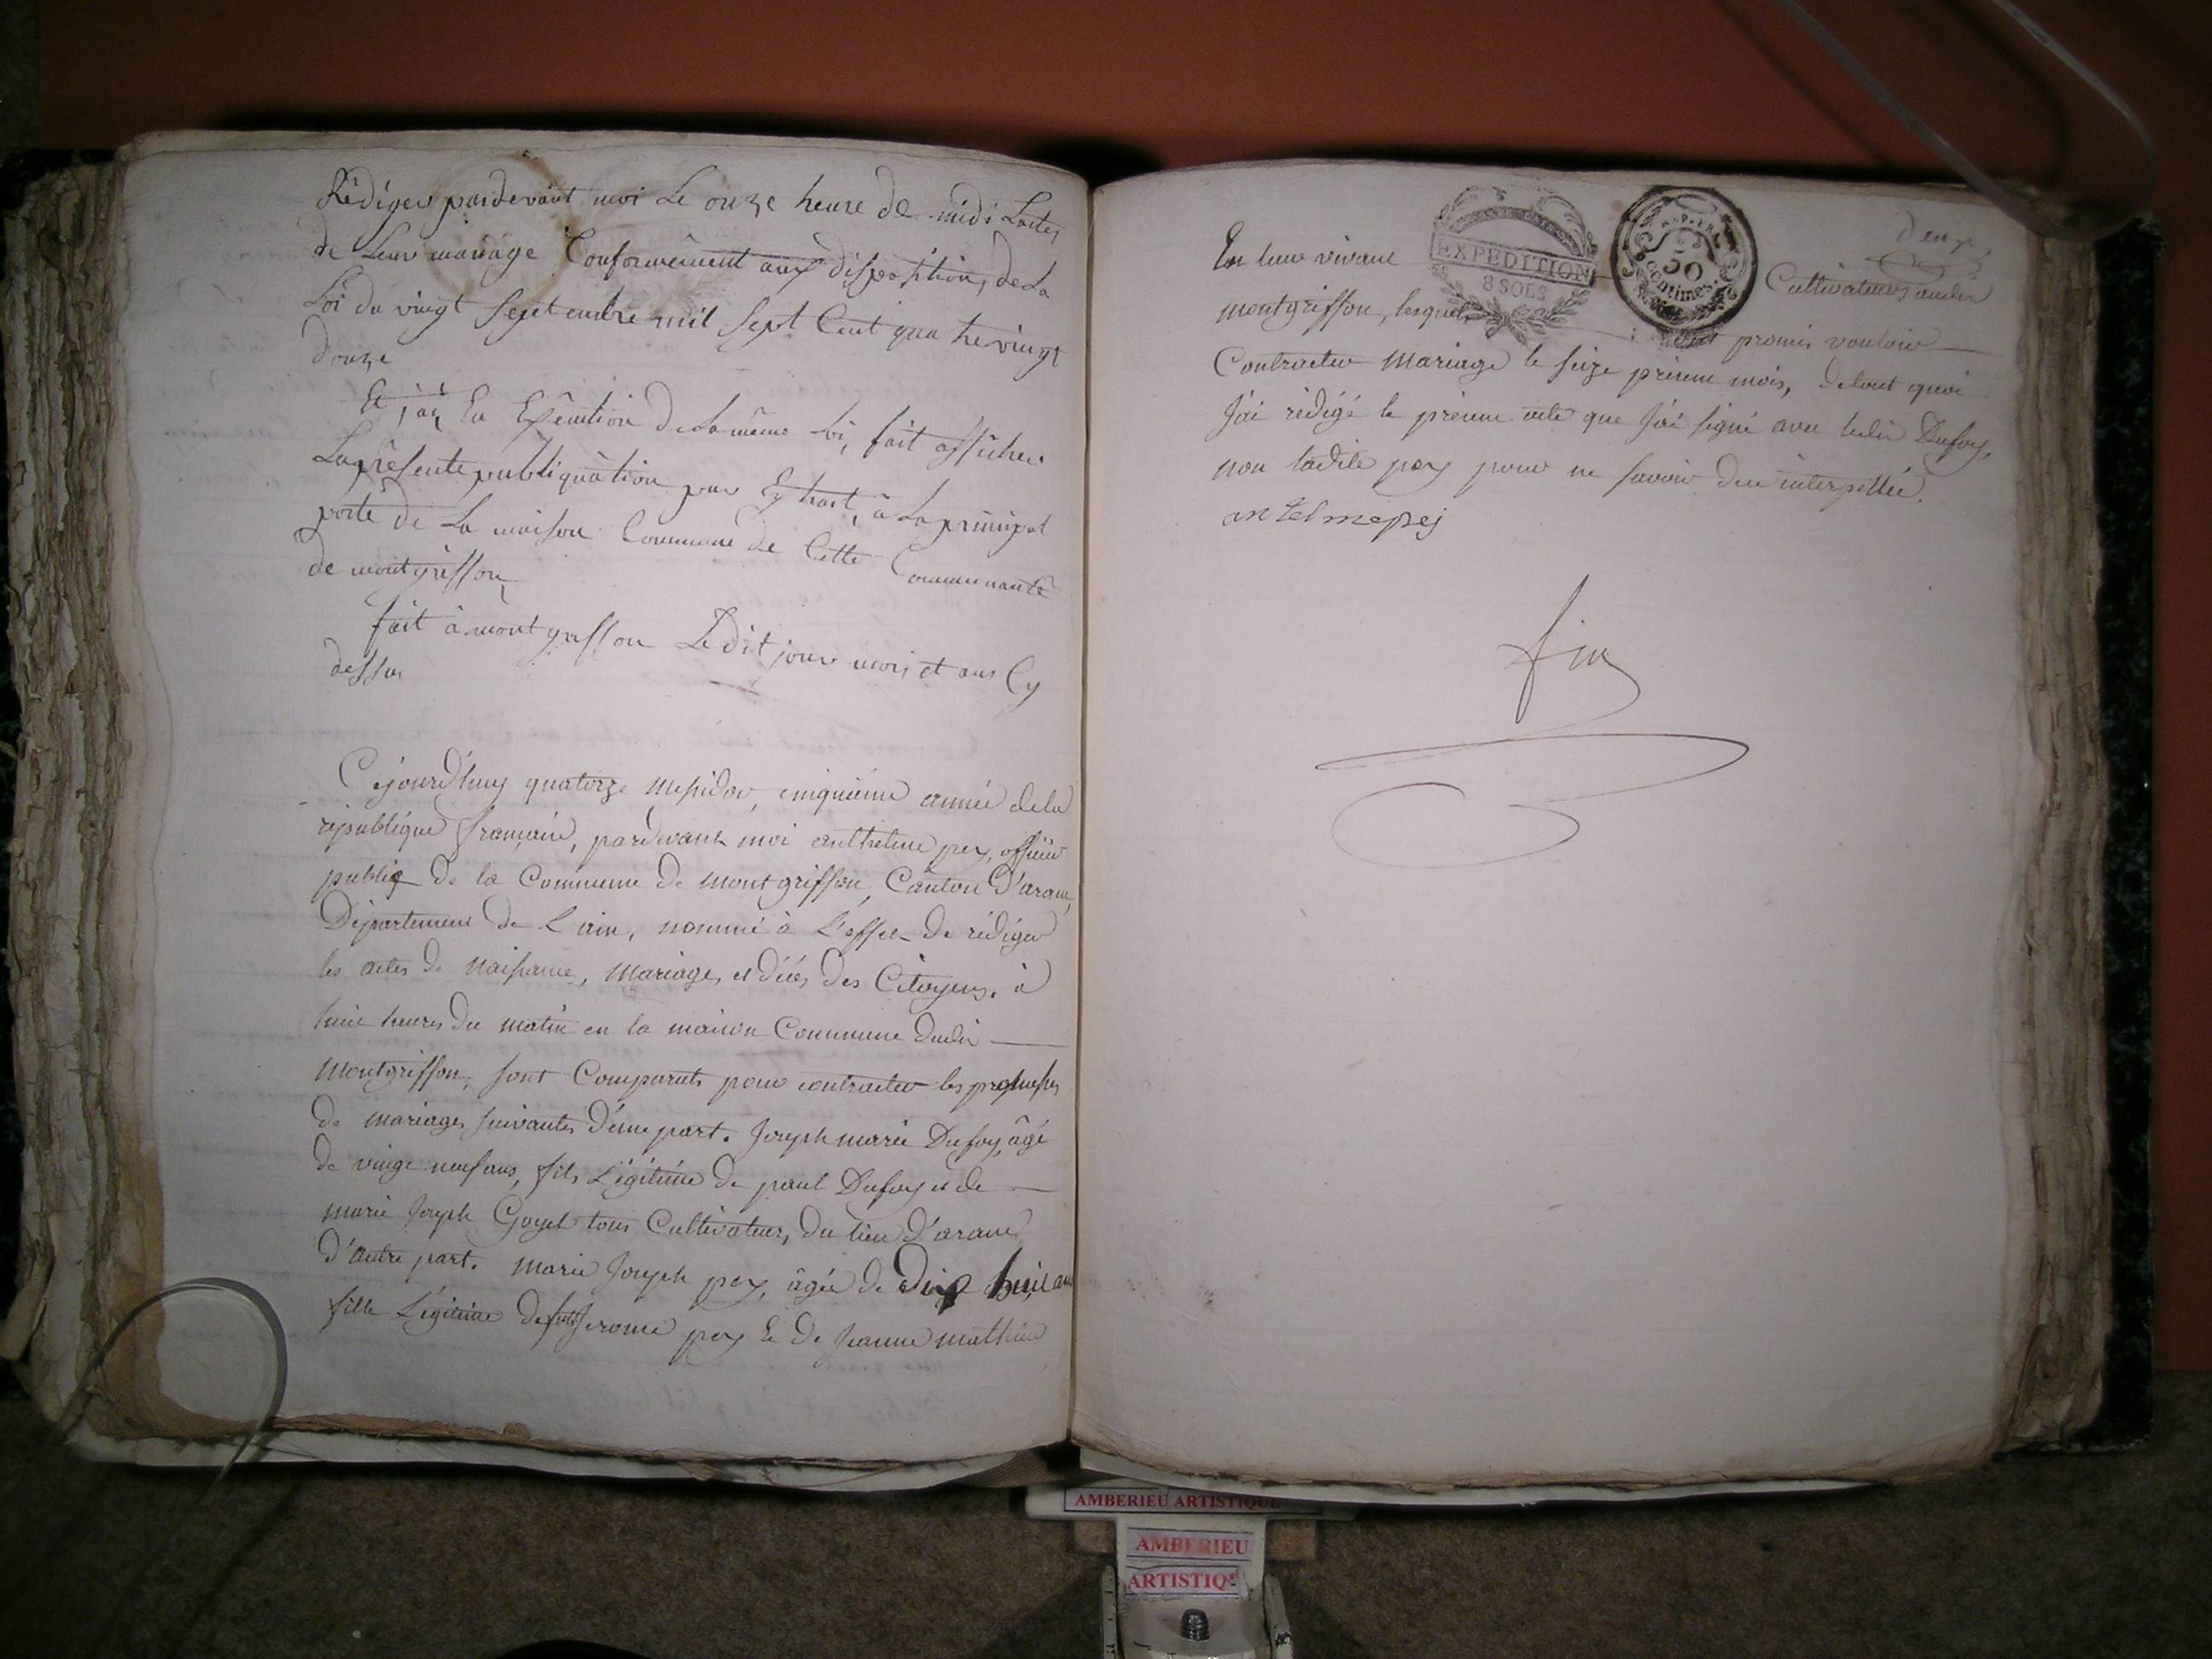 Rédiger pardevant moi Le onze heure de midi Lactes
de Leur mariage Conformément aux disposition, de La
Loi du vingt Septembre mil Sept Cent quatrevingt
douze
Et j'ai, En Exécution de La même loi, fait afficher
La présente publiquation par Extrait, à La principal
porte de La maison Commune de Cette Communauté
de montgriffon
fait à montgriffon Le dit jour mois et ans Cy
dessus
Cejourd'huy quatorze Messidor, cinquième année de la
république française, pardevant moi anthelme pey, officier
public de la Commune de montgriffon, Canton d'arane,
Département de L'ain, nommé à L'effet de rédiger
les actes de Naissance, Mariages et décès des Citoyens. à
huit heures du matin en la maison Commune dudit
Montgriffon, sont Comparuts pour contracter les promesses
de mariages suivantes d'une part. Joseph marie Dufoy, âgé
de vingt neuf ans, fils Légitime de paul Dufoy et de
marie Joseph Goyet tous Cultivateurs, du lieu d'arane
d'autre part. Marie Joseph pey, âgée de Dix huit ans
fille Légitime de fut Jerome pey & de Jeanne mathieu
deux
En leur vivant Cultivateurs audit
EXPEDITION
8 SOLS
50
centimes.
montgriffon, lesquels ont promis vouloir
Contracter Mariage le seize présent mois, de tout quoi
J'ai rédigé le présent acte que J'ai signé avec ledit Dufoy,
non ladite pey pour ne savoir de ce interpellée.
antelme pej
fin
AMBERIEU ARTISTIQUE
AMBERIEU
ARTISTIQ